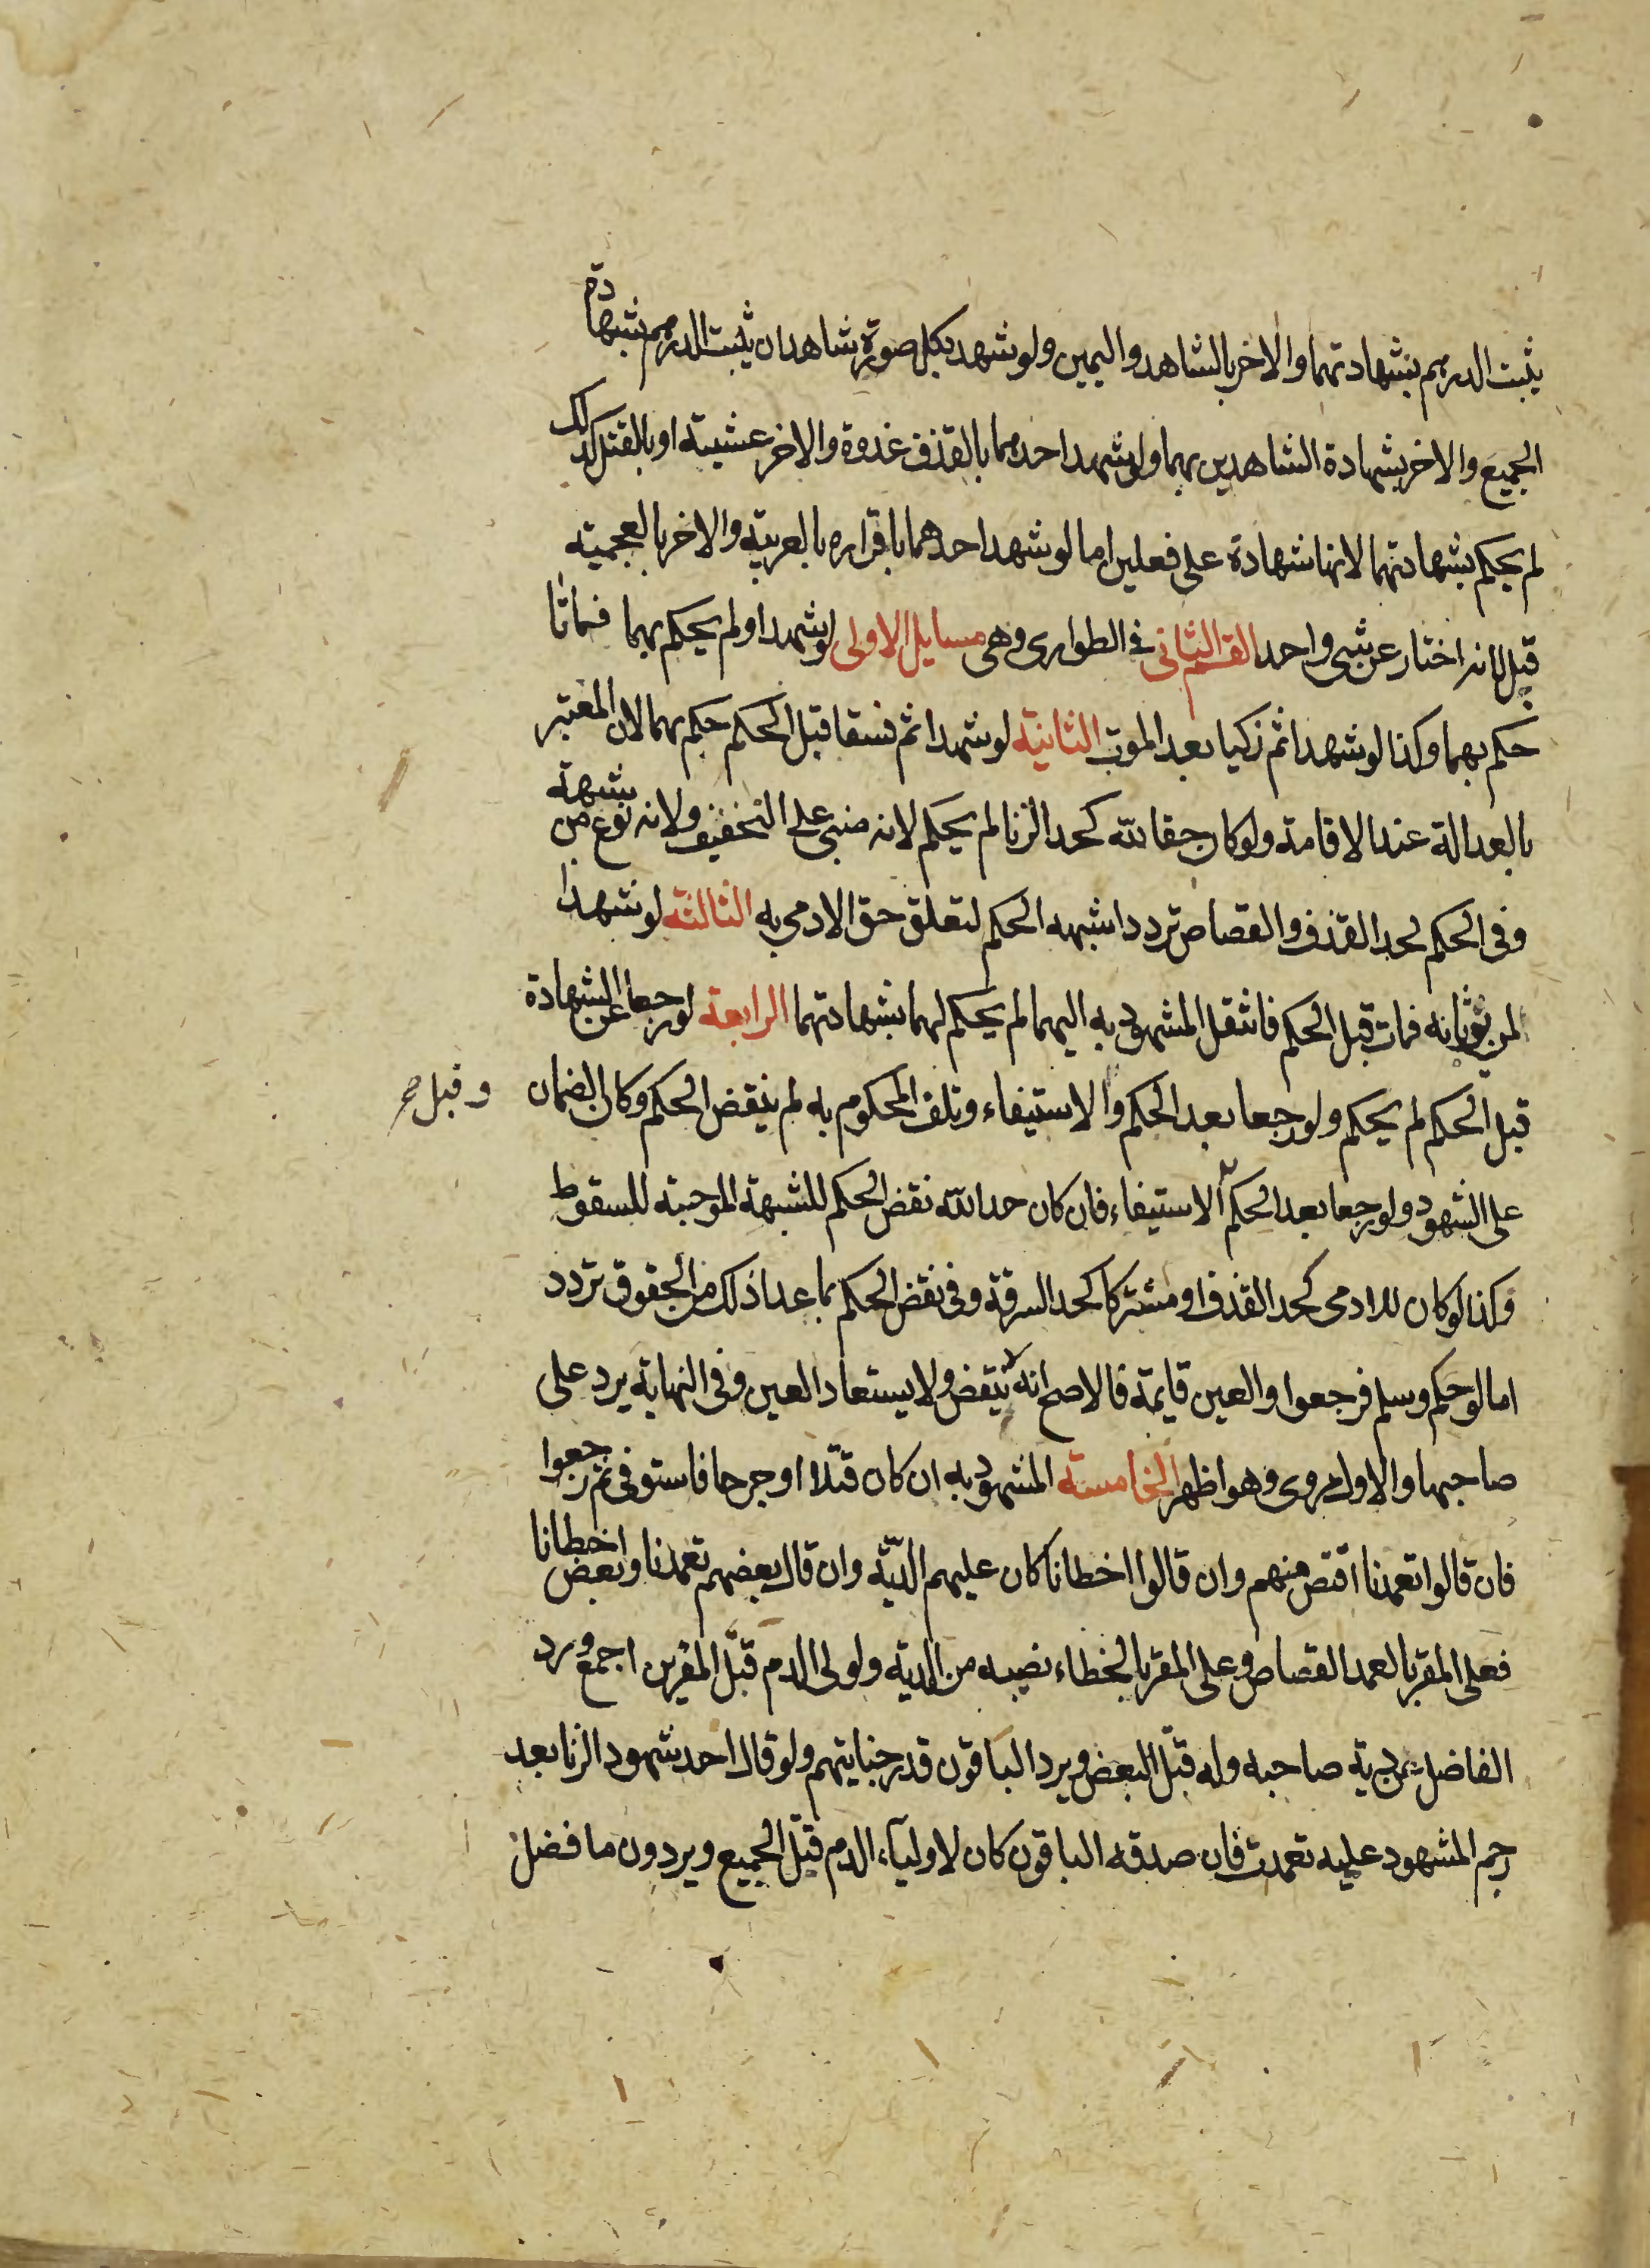 يثبت الدرهم بشهادتهما والاخر بالشاهد واليمين ولو شهد بكل صورة شاهدان يثبت الدرهم بشهادة
الجميع والاخر بشهادة الشاهدين بهما ولو شهد احدهما بالقذف غدوة والاخر عشية او بالقتل كذلك
لم يحكم بشهادتهما لانها شهادة على فعلين اما لو شهد احدهما باقراره بالعربية والاخر بالعجمية
قبل لانه اختار عن شى واحد القسم الثانى فى الطوارى وهى مسايل الاولى لو شهدا ولم يحكم بهما فماتا
حكم بهما وكذا لو شهدا ثم زكيا بعد الموت الثانية لو شهدا ثم فسقا قبل الحكم حكم بهما لان المعتبر
بالعدالة عند الاقامة ولو كان حقا لله كحد الزنا لم يحكم لانه مبنى على التخفيف ولانه نوع من شبهة
وفى الحكم لحد القذف والقصاص تردد اشبهه الحكم لتعلق حق الادمى به الثالثة لو شهدا
لمن يرثانه فمات قبل الحكم فانتقل المشهود به اليهما لم يحكم لهما بشهادتهما الرابعة لو رجعا عن الشهادة
قبل الحكم لم يحكم ولو رجعا بعد الحكم والاستيفاء وتلف المحكوم به لم ينقض الحكم وكان الضمان
وقبل صح
على الشهود ولو رجعا بعد الحكم الاستيفاء فان كان حد الله نقض الحكم للشبهة الموجبة للسقوط
وكذا لو كان للادمى كحد القذف او مشتركا كحد السرقة وفى نقض الحكم بما عدا ذلك من الحقوق تردد
اما لو حكم وسلم فرجعوا والعين قايمة فالاصح انه لا ينقض ولا يستعاد العين وفى النهاية يرد على
صاحبها والاول مروى وهو اظهر الخامسة المشهود به ان كان قتلا او جرحا فاستوفى ثم رجعوا
فان قالوا تعمدنا اقتص منهم وان قالوا اخطانا كان عليهم الدية وان قال بعضهم تعمدنا وبعض اخطانا
فعلى المقر بالعمد القصاص وعلى المقر بالخطاء نصيبه من الدية ولولى الدم قتل المقرين اجمع ورد
الفاضل عن دية صاحبه وله قتل البعض ويرد الباقون قدر جنايتهم ولو قال احد شهود الزنا بعد
رجم المشهود عليه تعمدت فان صدقه الباقون كان لاولياء الدم قتل الجميع ويردون ما فضل